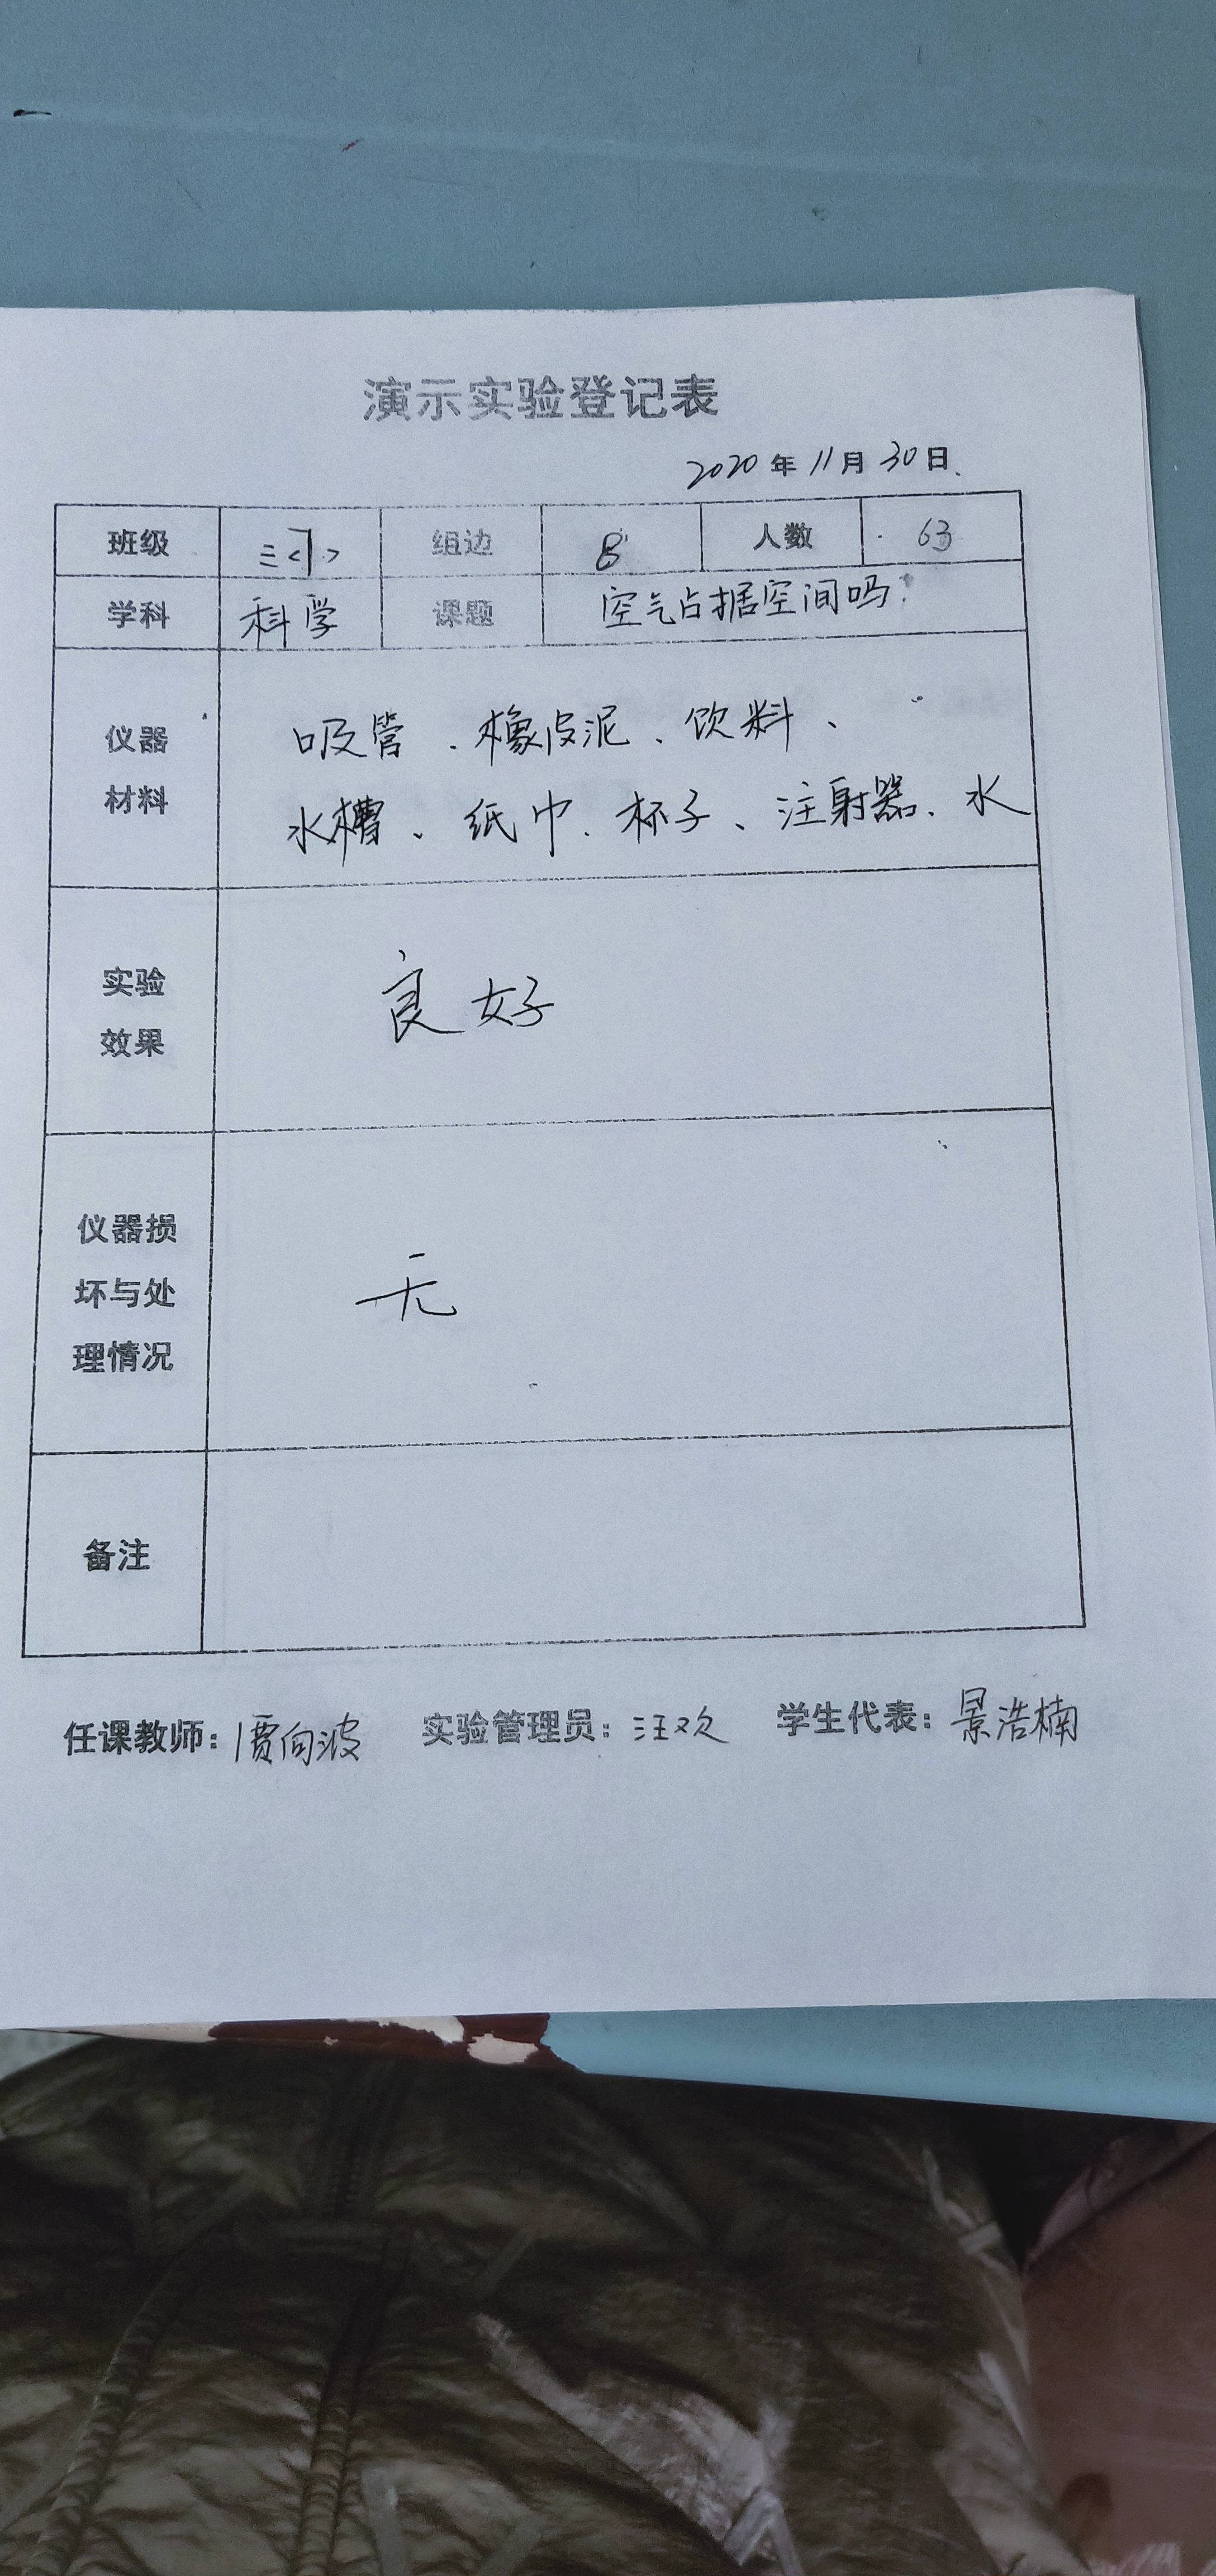 演示实验登记表
2020年11月30日
班级 三<1> 组边 8 人数 63
学科 科学 课题 空气占据空间吗?
仪器材料 吸管、橡皮泥、饮料、
水槽、纸巾、杯子、注射器、水
实验效果 良好
仪器损坏与处理情况 无
备注
任课教师:贾向波 实验管理员:汪欢 学生代表:景浩楠